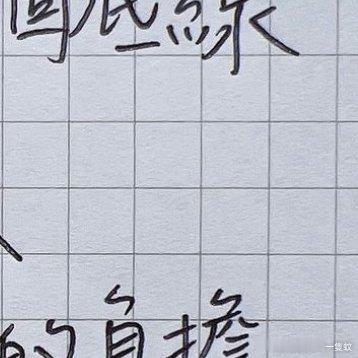 個底線
的負擔
一隻蚊